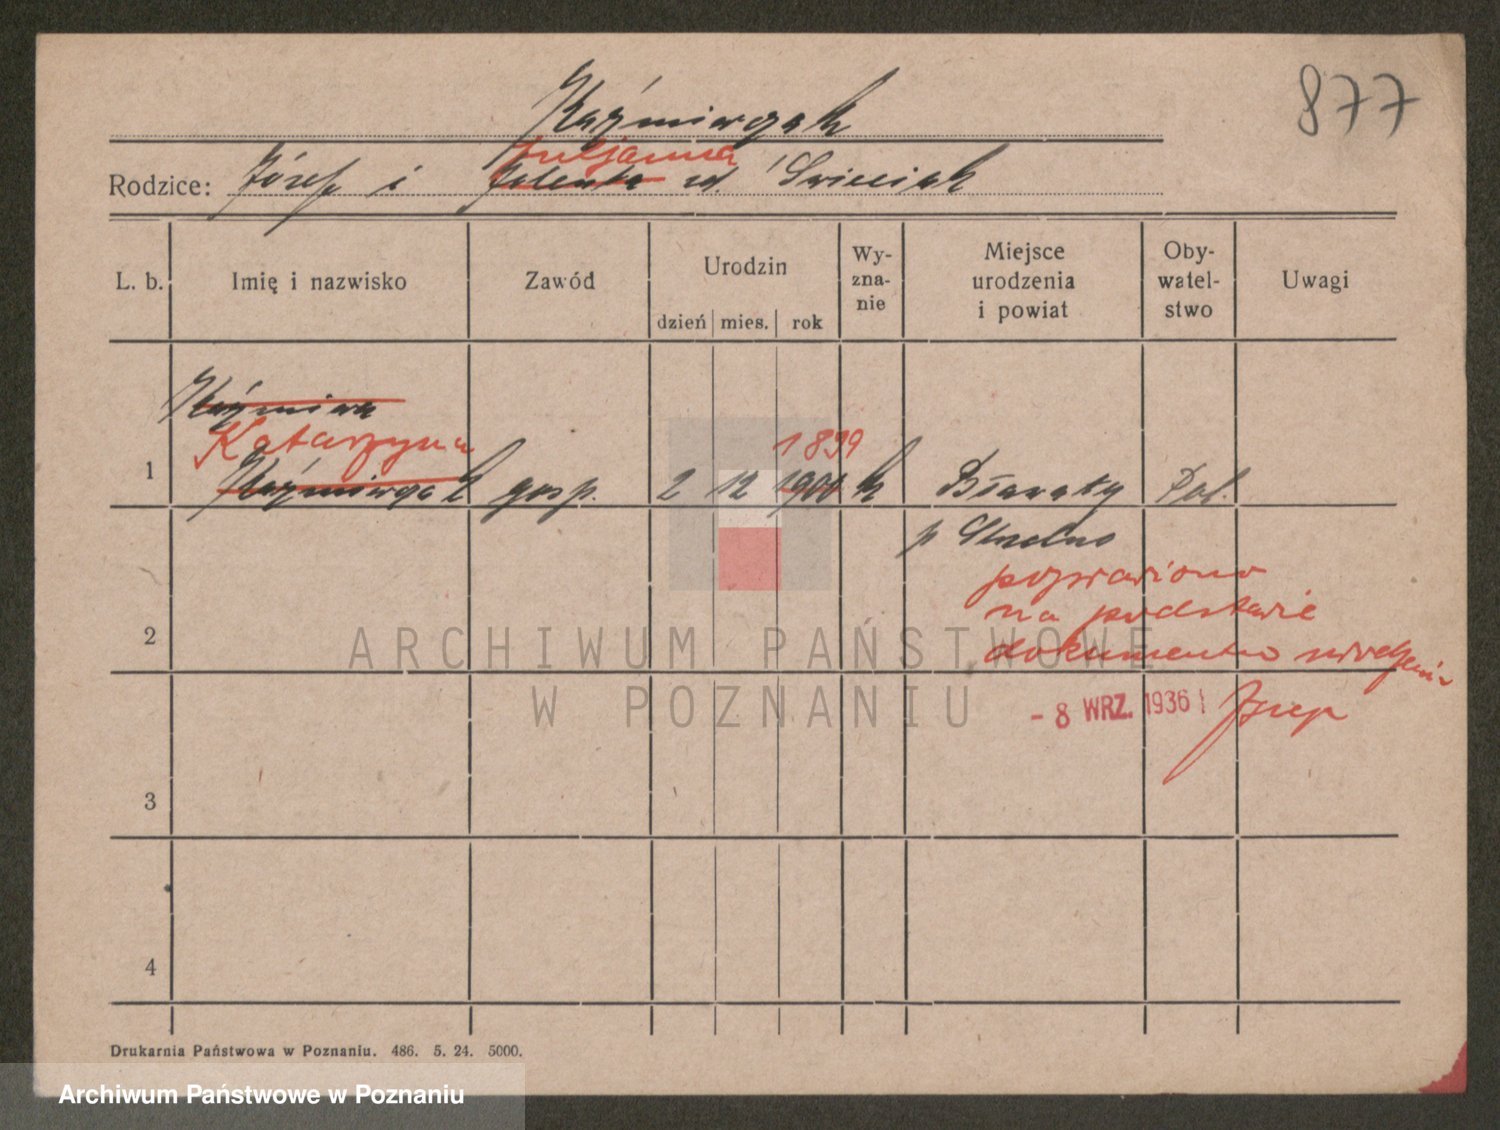 877
Kaźmierczak
Juljanna
Rodzice: Józef i Jolenta zd. Świeciak
L. b. Imię i nazwisko Zawód Urodzin dzień mies. rok Wyznanie Miejsce urodzenia i powiat Obywatelstwo Uwagi
Kaźmiera
Katarzyna 1899
1 Kaźmierczak gosp. 2 12 1900 k Bławaty Pol.
p Strzelno
poprawiono
na podstawie
2 dokumentu urodzenia
ARCHIWUM PAŃSTWOWE
W POZNANIU
- 8 WRZ. 1936
3
4
Drukarnia Państwowa w Poznaniu. 486. 5. 24. 5000.
Archiwum Państwowe w Poznaniu